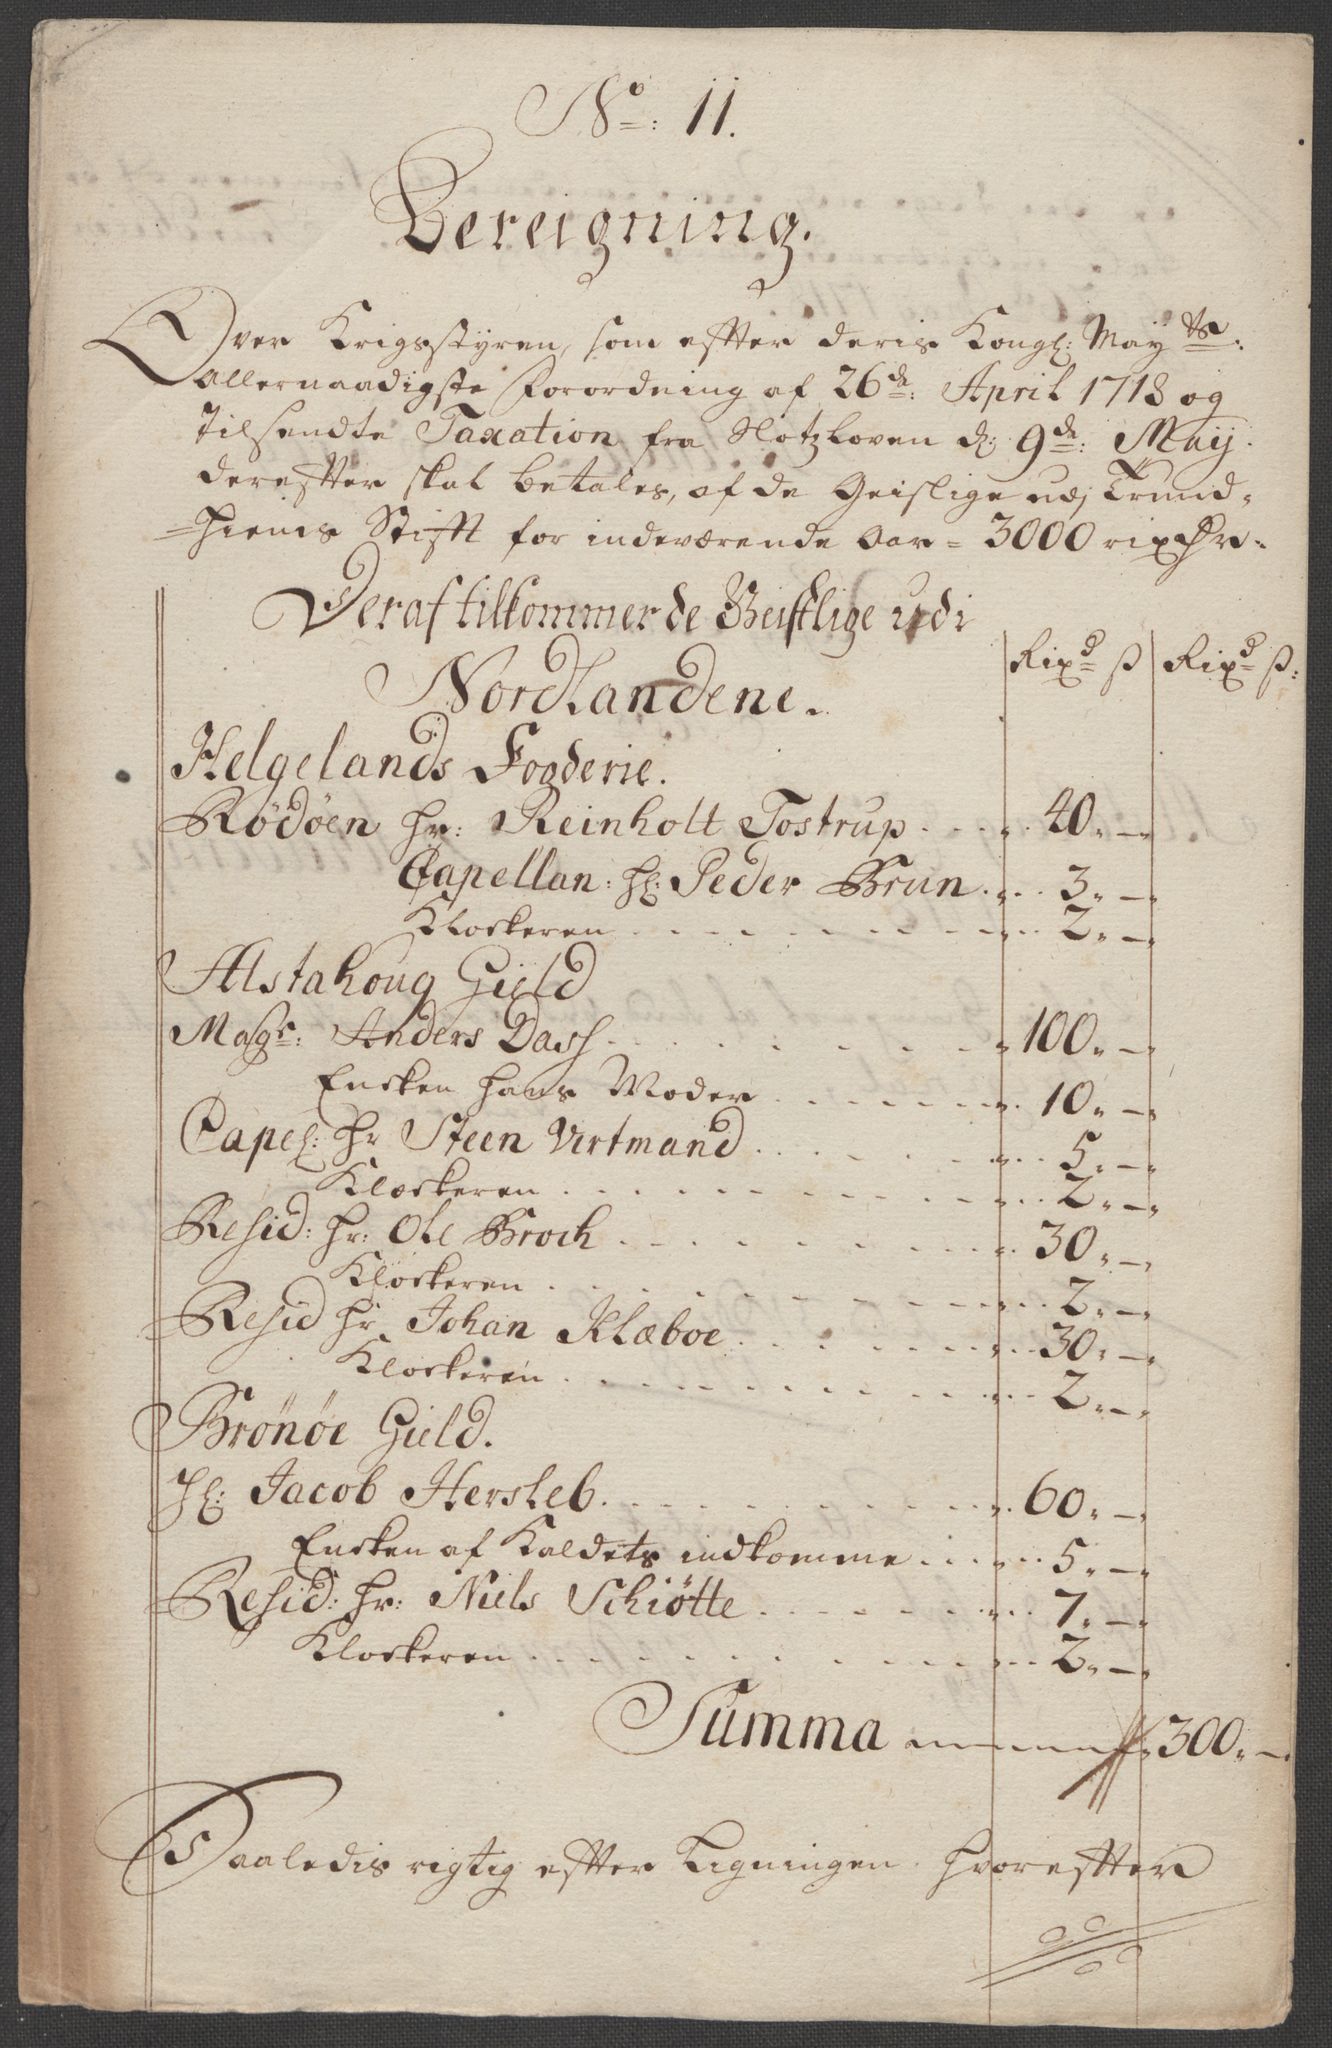 No: 11.
Bereigning.
Over Krigsstyren, som effter deris Kongl: Mayts:
Allernaadigste Forordning af 26de: April 1718 og
tilsendte Taxation fra Slotzloven d: 9de: Maij.
dereffter skal betales, af de Geistlige udj Trund-
=hiems Stifft for indeværende Aar = 3000 rixdr.
Deraf tilkommer de Geistlige udi
Rixd ß Rixd ß:
Nordlandene.
Helgelands Fogderie.
Rödöen hr: Reinholt Tostrup . . . . 40. —
Capellan: hr: Peder Brun . . . 3. —
Klockeren . . . . . . 2. —
Alstahoug Gield
Magr: Anders Dass . . . . . . 100. —
Encken hans Moder . . . . . . 10. —
Capel: hr Steen Virtmand . . . . . 5. —
Klockeren . . . . . . 2. —
Resid: hr: Ole Broch . . . . . . 30. —
Klockeren . . . . . . 2. —
Resid hr Johan Klæboe . . . . . . 30. —
Klockeren . . . . . . 2. —
Brönöe Gield.
Hr: Jacob Hersleb . . . . . . 60. —
Encken af Kaldets indkomme . . . . 5. —
Resid: hr: Niels Schiötte . . . . . . 7. —
Klockeren . . . . . . 2. —
Summa 300. —
Saaledis rigtig effter Ligningen hvoreffter